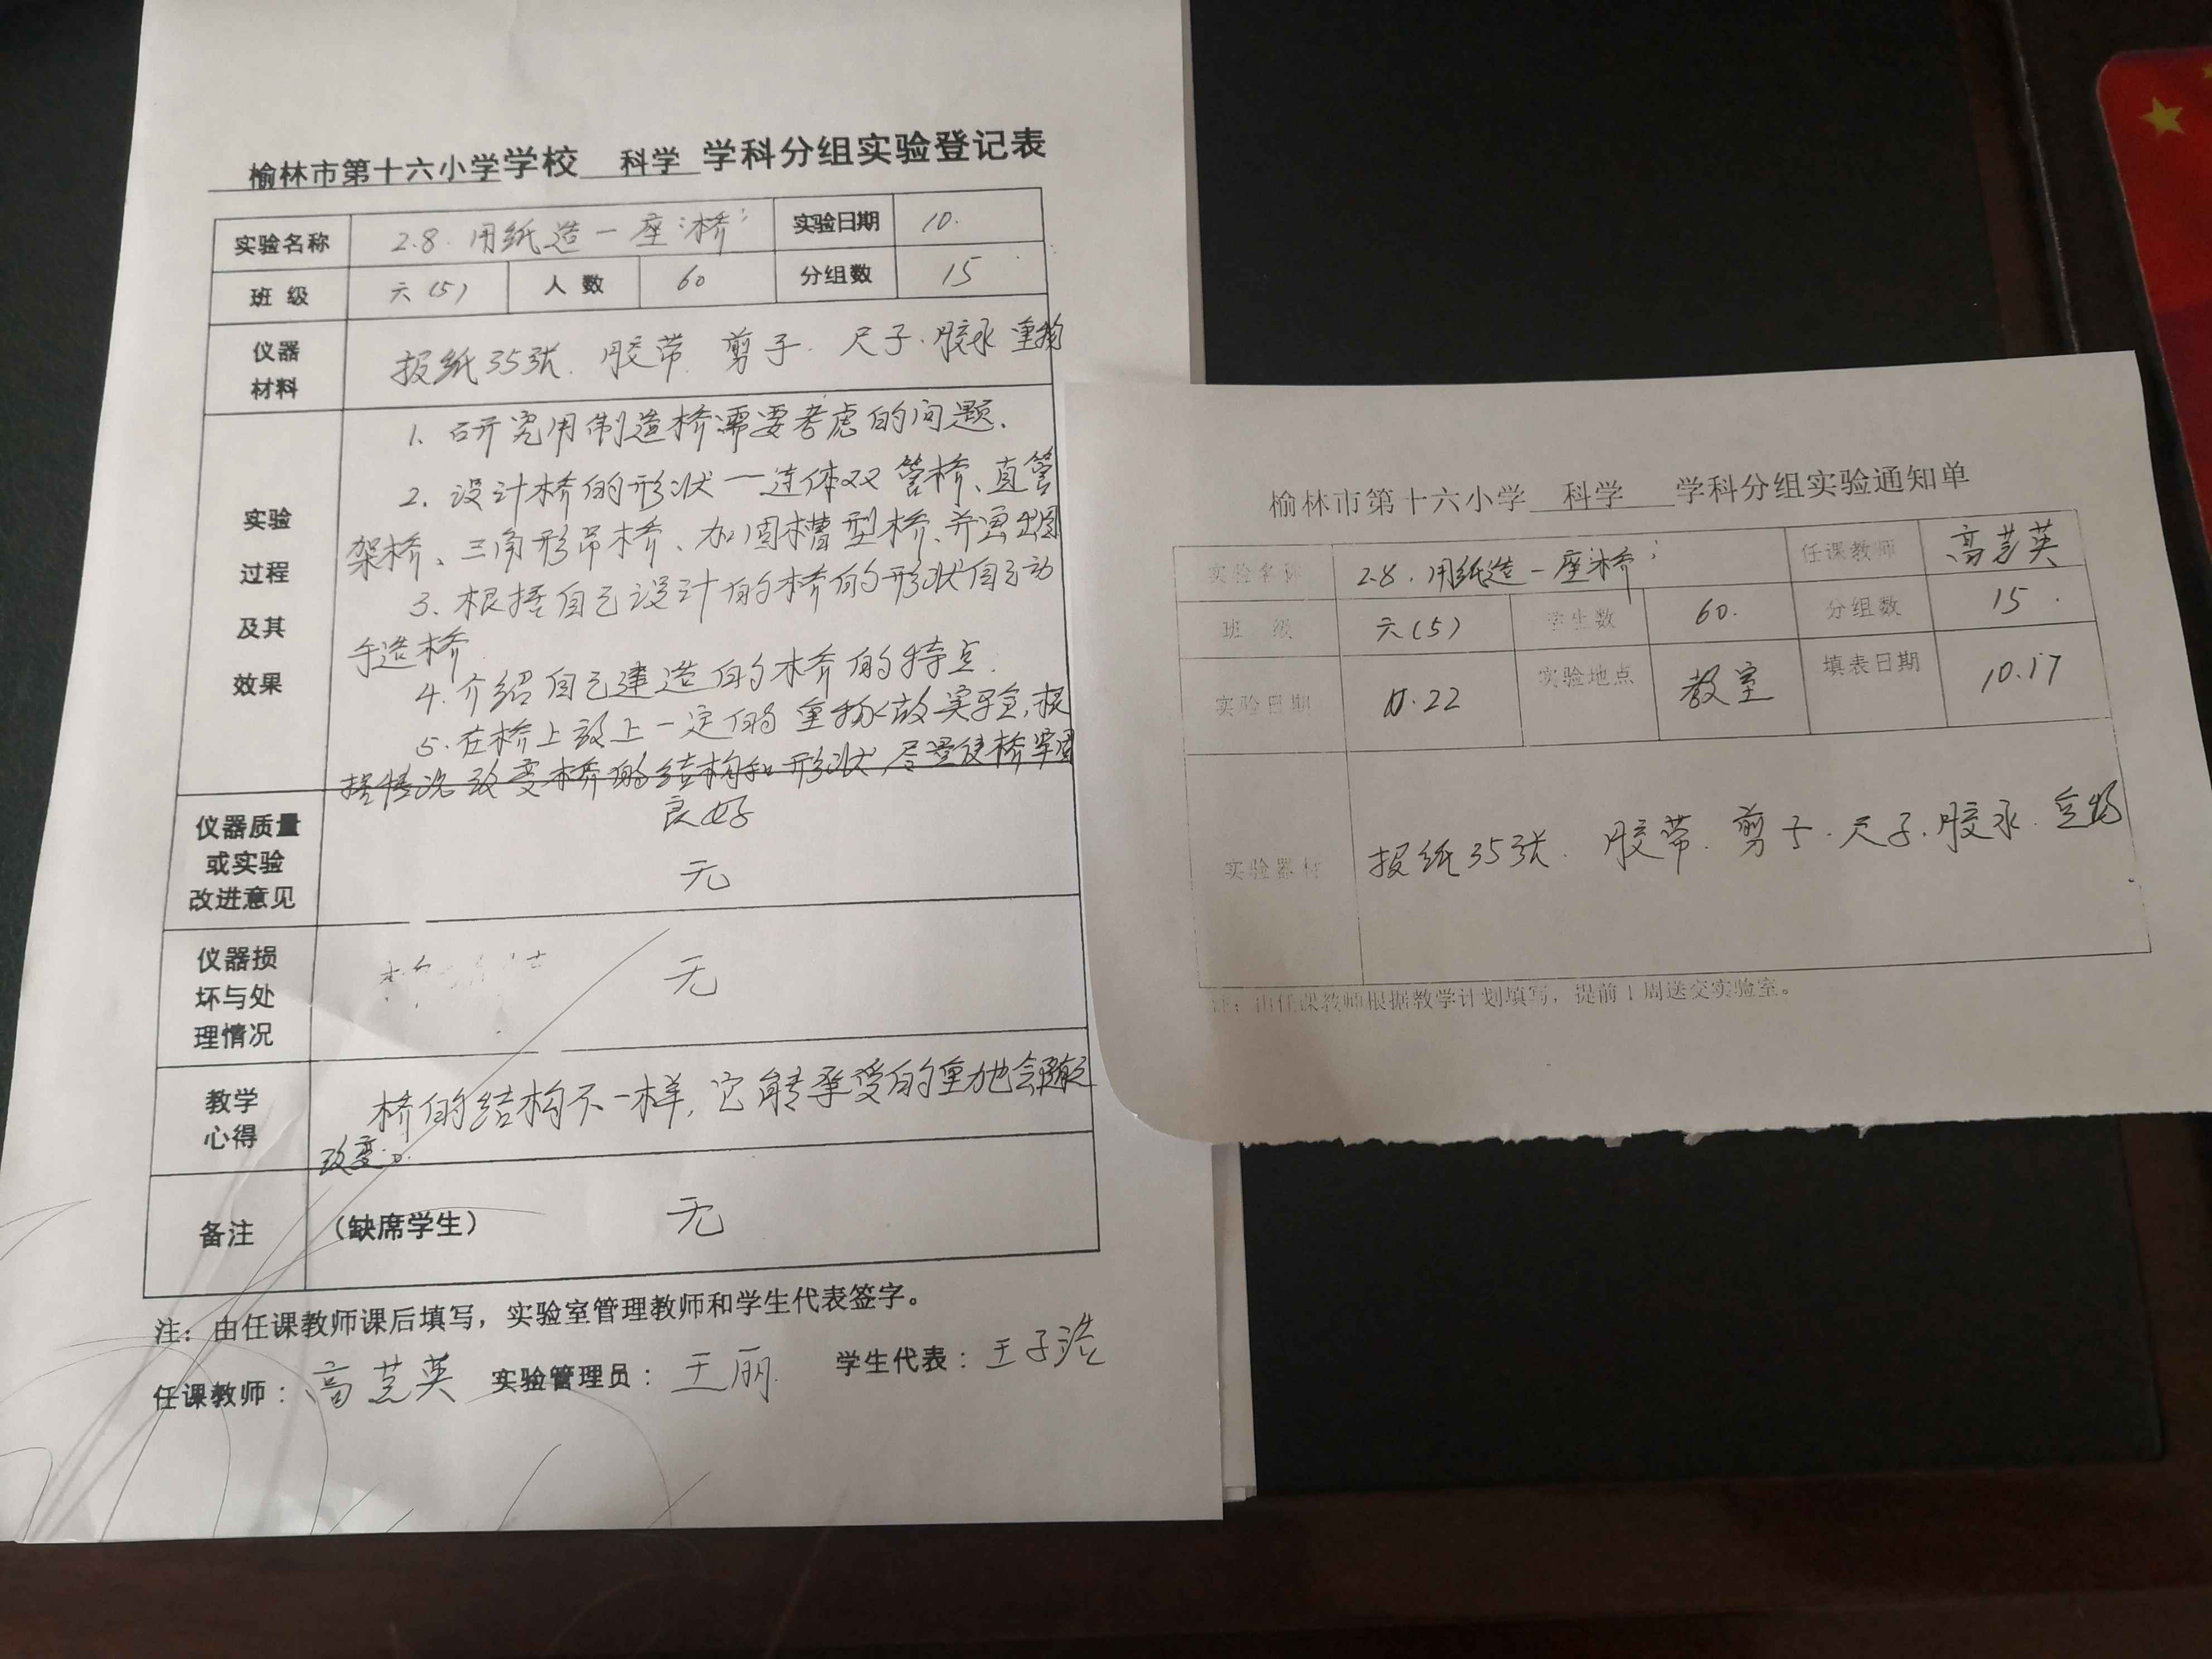 榆林市第十六小学学校 科学 学科分组实验登记表
实验名称 2.8.用纸造一座“桥” 实验日期 10.
班 级 六(5) 人 数 60 分组数 15
仪器
材料
报纸35张. 胶带. 剪子. 尺子.胶水 重物
实验
过程
及其
效果
1、研究用制造桥需要考虑的问题.
2、设计桥的形状—连体双管桥、直管
架桥、三角形吊桥、加固槽型桥、并画出图
3、根据自己设计的桥的形状自己动
手造桥
4.介绍自己建造的桥的特点.
5.在桥上放上一定的重物做实验,根
据情况改变桥的结构和形状,尽量使桥牢固
仪器质量
或实验
改进意见
良好
无
仪器损
坏与处
理情况
无
教学
心得
桥的结构不一样,它能承受的重力也会随之
改变。
备注 (缺席学生) 无
注：由任课教师课后填写，实验室管理教师和学生代表签字。
任课教师：高芸英 实验管理员：王丽 学生代表：王子浩
榆林市第十六小学 科学 学科分组实验通知单
实验名称 2.8.用纸造一座“桥” 任课教师 高芸英
班 级 六(5) 学生数 60. 分组数 15.
实验日期 10.22 实验地点 教室 填表日期 10.17
实验器材 报纸35张. 胶带. 剪子.尺子.胶水.重物
注：由任课教师根据教学计划填写，提前1周送交实验室。